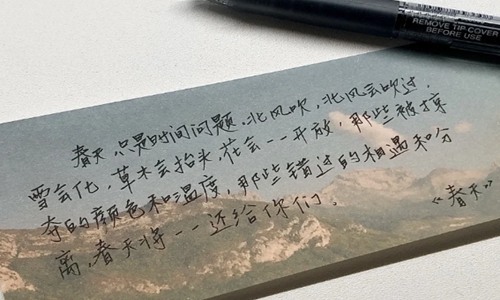 REMOVE TIP COVER
BEFORE USE
春天，只是时间问题。北风吹，北风会吹过，
雪会化，草木会抬头，花会一一开放，那些被掠
夺的颜色和温度，那些错过的相遇和分
离，春天将一一还给你们。
《春天》